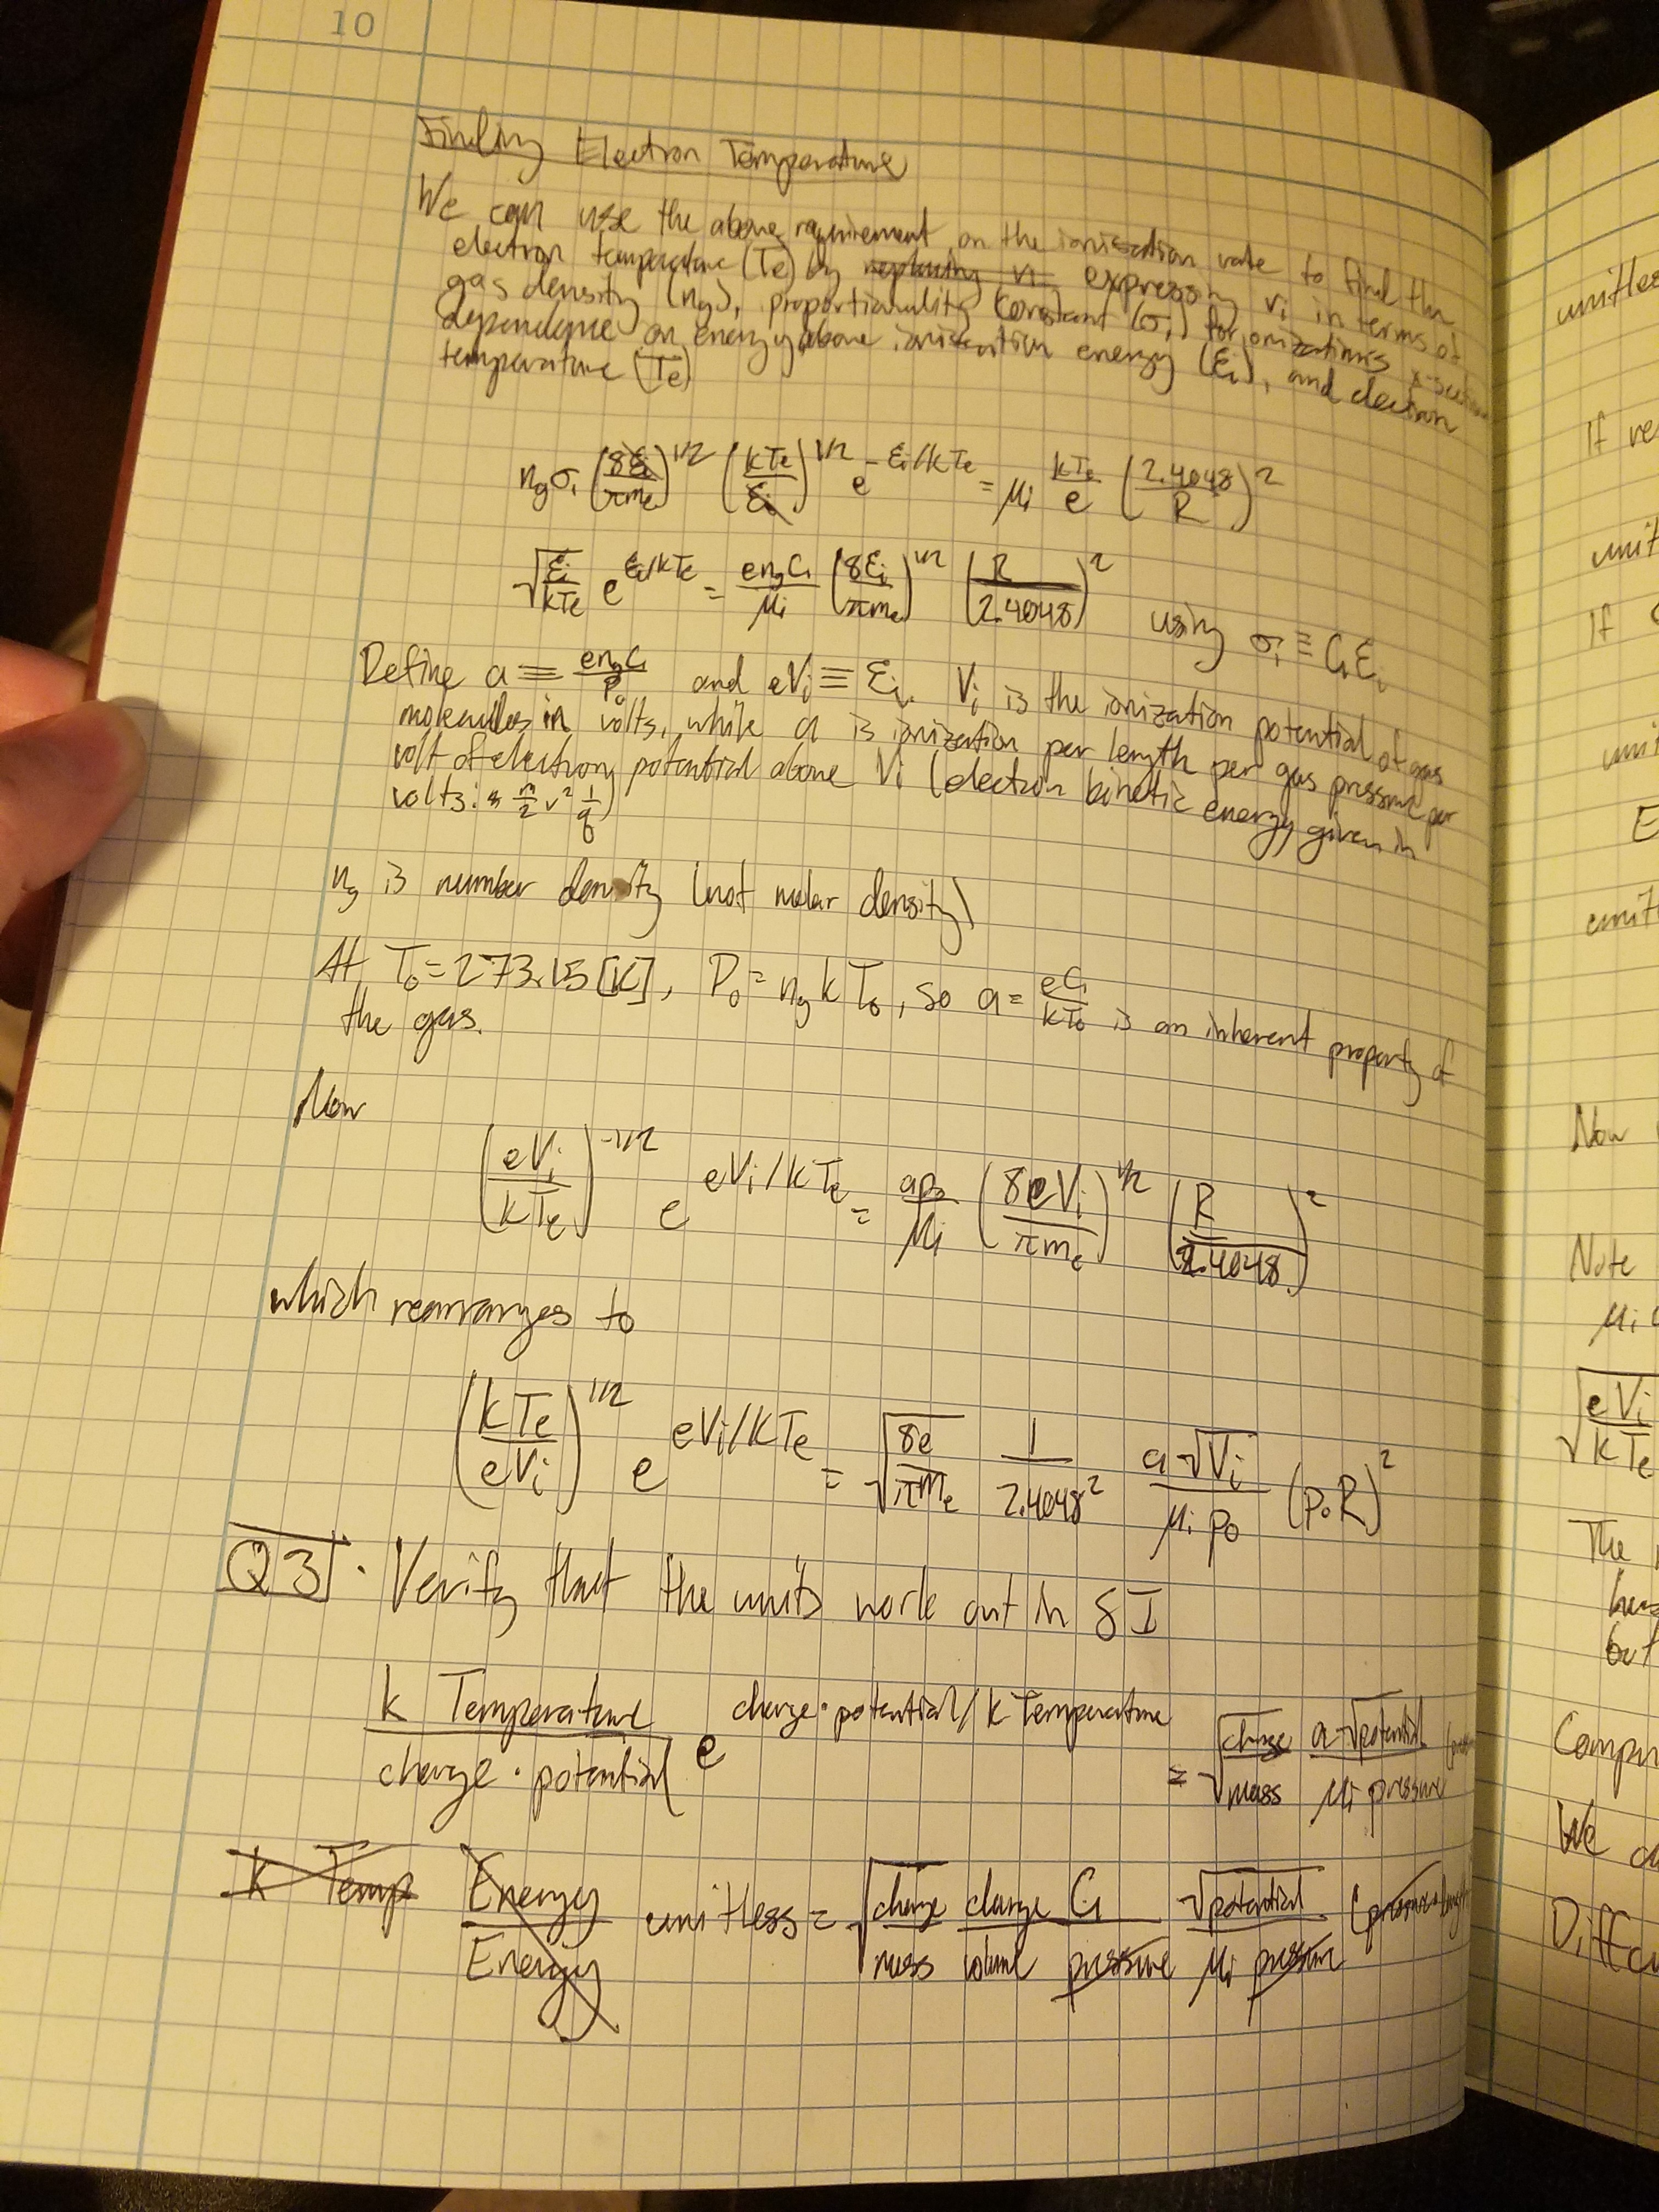 10
Finding Electron Temperature
We can use the above requirement on the ionisation rate to find the
electron temperature (Te) by replacing νi expressing νi in terms of
gas density (ng), proportionality constant (σi) for ionizations x-section
dependence on energy above ionization energy (Ɛi), and electron
temperature (Te)
ngσi (8Ɛi/πme)^1/2 (kTe/Ɛi)^1/2 e^-Ɛi/kTe = μi kTe/e (2.4048/R)^2
√(Ɛi/kTe) e^Ɛi/kTe = engCi/μi (8Ɛi/πme)^1/2 (R/2.4048)^2 using σi ≡ CiƐi
Define a ≡ engCi/P0 and eVi ≡ Ɛi. Vi is the ionization potential of gas
molecules in volts, while a is ionization per length per gas pressure per
volt of electron potential above Vi (electron kinetic energy given in
volts: m/2 v² 1/q)
ng is number density (not molar density)
At T0 = 273.15 [K], P0 = ngkT0, so a = eCi/kT0 is an inherent property of
the gas.
Now
(eVi/kTe)^-1/2 e^eVi/kTe = ap0/μi (8eVi/πme)^1/2 (R/2.4048)^2
which rearranges to
(kTe/eVi)^1/2 e^eVi/kTe = √(8e/πme) 1/2.4048² a√Vi/μip0 (p0R)^2
Q3 · Verify that the units work out in SI
k Temperature/charge · potential e^charge · potential/k Temperature = √(charge/mass) a√potential/μi pressure
k Temp Energy/Energy unitless = √(charge/mass) charge Ci/volume pressure √potential/μi pressure
unitless
If
unit
If
Now
Note
μi
√(eVi/kTe)
The
but
We